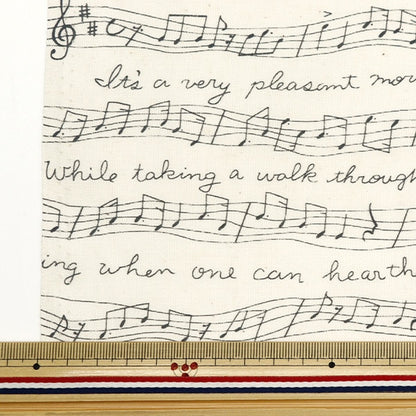 It's a very pleasant mor
While taking a walk through
ing when one can hearth